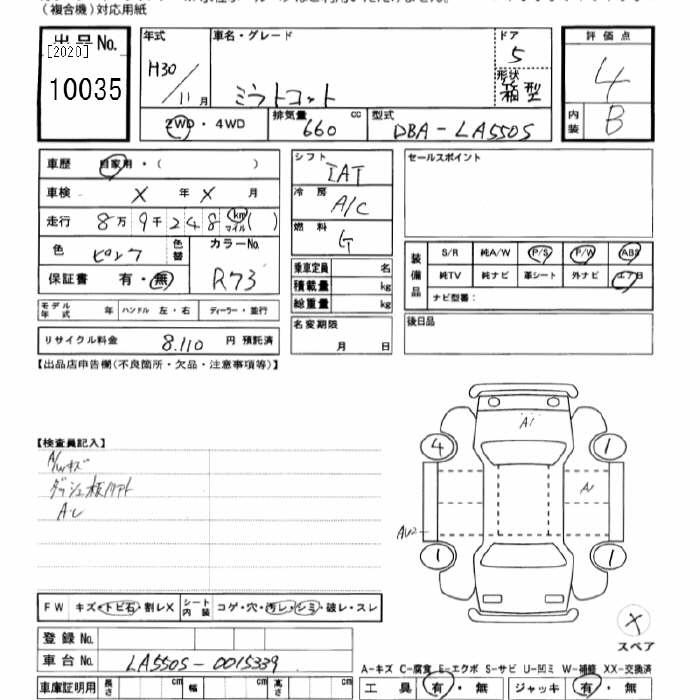 (複合機)対応用紙
出品No.
[2020]
10035
年式 車名・グレード ドア 評価点
H30/11月 ミラトコット 5 4
形状 箱型
2WD・4WD 排気量 660 cc 型式 DBA-LA550S 内装 B
車歴 自家用・( )
車検 X 年 X 月
走行 8万9千248 km マイル( )
色 ピンク 色替 カラーNo. R73
保証書 有・無
モデル年式 年 ハンドル 左・右 ディーラー・並行
リサイクル料金 8,110 円 預託済
シフト IAT
冷房 A/C
燃料 G
乗車定員 名
積載量 kg
総重量 kg
名変期限
月 日
セールスポイント
装備品 S/R 純A/W P/S P/W ABS
純TV 純ナビ 革シート 外ナビ エアB
ナビ型番:
後日品
【出品店申告欄(不良箇所・欠品・注意事項等)】
【検査員記入】
A1
4 1
A1
1 1
FW キズ・トビ石・割レX シート内装 コゲ・穴・汚レ・シミ・破レ・スレ
X
スペア
登録No.
車台No. LA550S-0015339
A-キズ C-腐食 E-エクボ S-サビ U-凹ミ W-補修 XX-交換済
車庫証明用 長さ cm 幅 cm 高さ cm
工具 有・無 ジャッキ 有・無